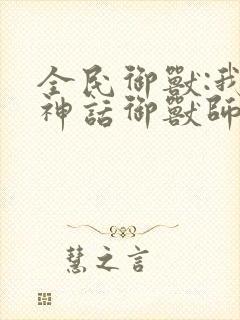 全民御獸:我
神話御獸師
慧之言